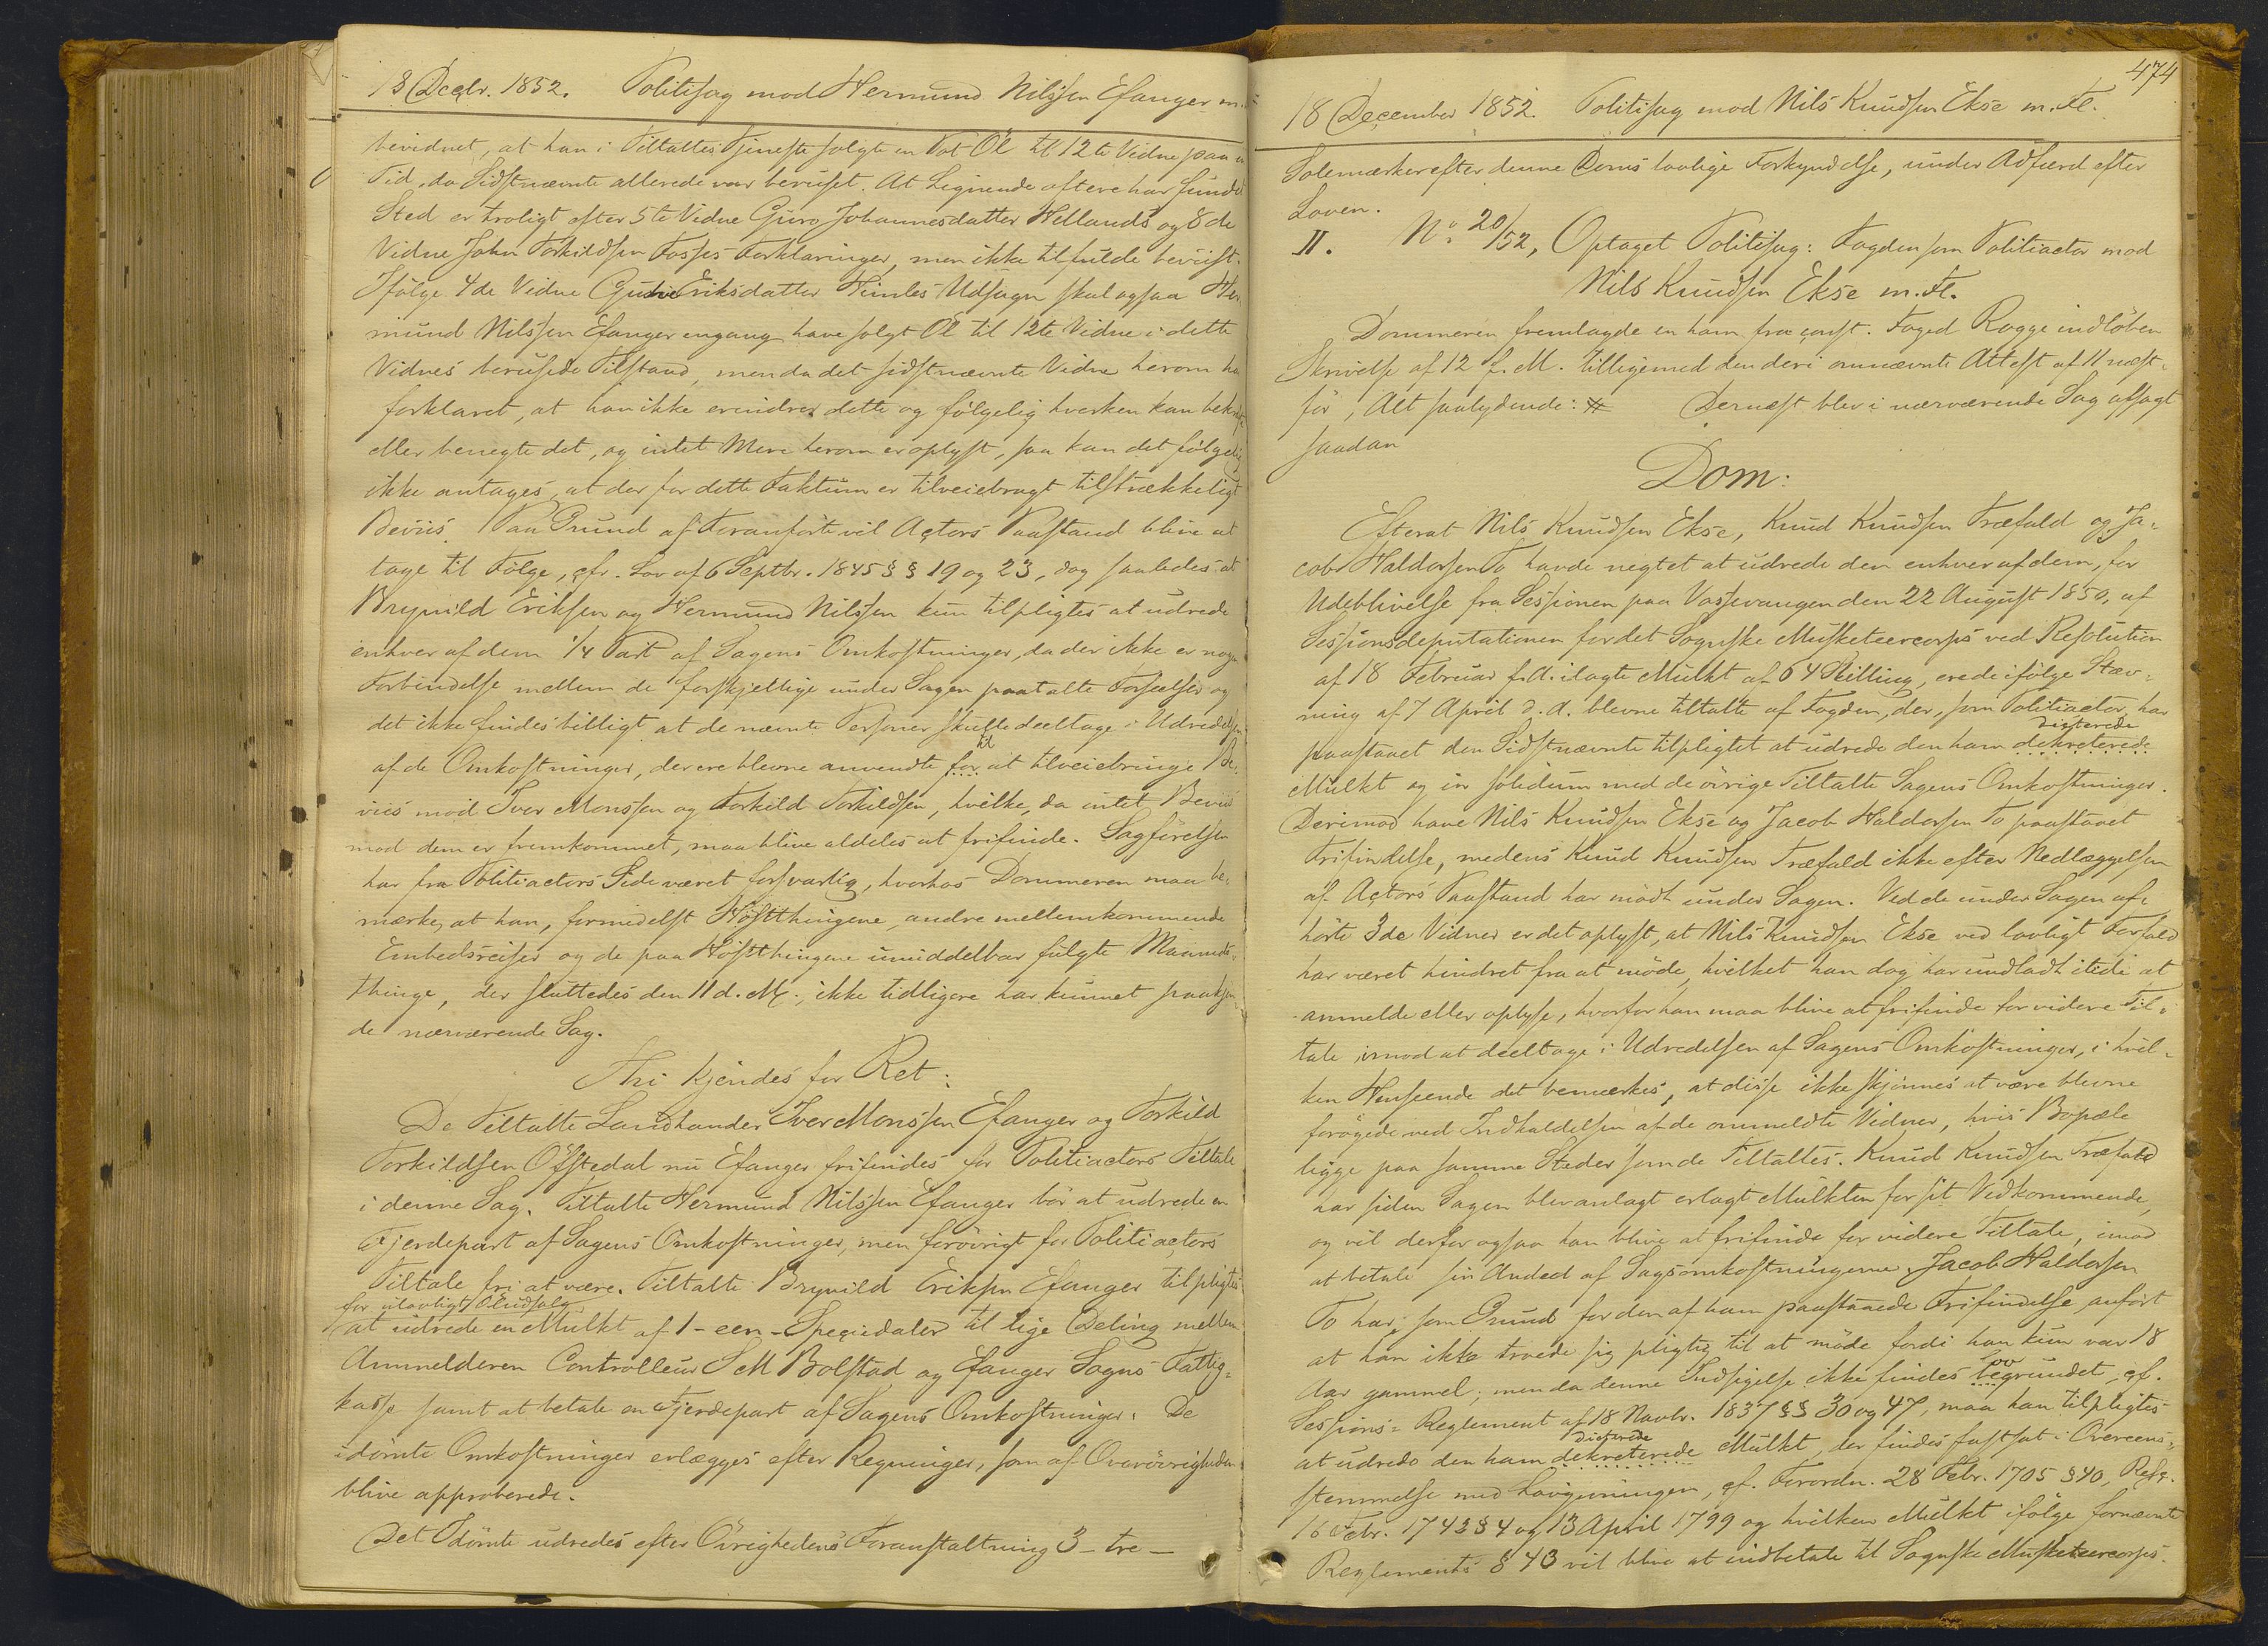 18 Decbr. 1852. Politisag mod Hermund Nilssen Efanger m.
bevidnet, at han i Tiltaltes Tjeneste solgte en Pot Öl til 12te Vidne paa en
Tid, da Sidstnævnte allerede var beruset. At Lignende oftere har fundet
Sted er troligt efter 5te Vidne Guro Johannesdatter Hellands og 8de
Vidne John Torkildsen Fosses Forklaringer, men ikke tilfulde beviist.
Ifölge 4de Vidne Guri Eriksdatter Himles Udsagn skal ogsaa Her-
mund Nilssen Efanger engang have solgt Öl til 12te Vidne i dette
Vidnes berusede Tilstand, men da det sidstnævnte Vidne herom ha
forklaret, at han ikke erindrer dette og fölgelig hverken kan bekræfte
eller benegte det, og intet Mere herom er oplyst, saa kan det fölgelig
ikke antages, at der for dette Faktum er tilveiebragt tilstrækkeligt
Beviis. Paa Grund af Foranförte vil Actors Paastand blive at
tage til Fölge, cfr. Lov af 6 Septbr. 1845 §§ 19 og 23, dog saaledes at
Brynild Eriksen og Hermund Nilssen kun tilpligtes at udrede
enhver af dem 1/4 Part af Sagens Omkostninger, da der ikke er nogen
Forbindelse mellem de forskjellige under Sagen paatalte Forseelser og
det ikke findes billigt at de nævnte Personer skulle deeltage i Udredelsen
af de Omkostninger, der ere blevne anvendte for til at tilveiebringe Be-
viis mod Iver Monssen og Torkild Torkildsen, hvilke, da intet Beviis
mod dem er fremkommet, maa blive aldeles at frifinde. Sagförelsen
har fra Politiactors Side været forsvarlig, hvorhos Dommeren maa be-
mærke, at han, formedelst Höstthingene, andre mellemkommende
Embedsreiser og de paa Höstthingene umiddelbar fulgte Maaneds-
thinge, der sluttedes den 11 d. M., ikke tidligere har kunnet paakjen-
de nærværende Sag.
Thi kjendes for Ret:
De Tiltalte Landhandler Iver Monssen Efanger og Torkild
Torkildsen Öfstedal nu Efanger frifindes for Politiactors Tiltale
i denne Sag. Tiltalte Hermund Nilssen Efanger bör at udrede en
Fjerdepart af Sagens Omkostninger, men forövrigt for Politiactors
Tiltale fri at være. Tiltalte Brynild Eriksen Efanger tilpligtes
for ulovligt Öludsalg
at udrede en Mulkt af 1 - een - Speciedaler til lige Deling mellem
Anmelderen Controlleur S M Bolstad og Efanger Sogns Fattig-
kasse samt at betale en Fjerdepart af Sagens Omkostninger. De
idömte Omkostninger erlægges efter Regninger, som af Overövrigheden
blive approberede.
Det Idömte udredes efter Övrighedens Foranstaltning 3 - tre -
474
18 December 1852. Politisag mod Nils Knudsen Ekse m. Fl.
Solemærker efter denne Doms lovlige Forkyndelse, under Adfærd efter
Loven.
II. No. 20/52, Optaget Politisag: Fogden som Politiactor mod
Nils Knudsen Ekse m. Fl.
Dommeren fremlagde en ham fra const. Foged Rogge indlöben
Skrivelse af 12 f. M. tilligemed den deri omnævnte Attest af 11 næst-
för, Alt saalydende: # Dernæst blev i nærværende Sag afsagt
saadan
Dom:
Efterat Nils Knudsen Ekse, Knud Knudsen Træfald og Ja-
cob Haldorsen To havde negtet at udrede den enhver af dem, for
Udeblivelse fra Sessionen paa Vossevangen den 22 August 1850, af
Sessionsdeputationen for det Sognske Musketeercorps ved Resolution
af 18 Februar f. A. ilagte Mulkt af 64 Skilling, ere de ifölge Stæv-
ning af 7 April d. A. blevne tiltalte af Fogden, der, som Politiactor, har
dicterede
paastaaet den Sidstnævnte tilpligtet at udrede den ham dekreterede
Mulkt og in solidum med de övrige Tiltalte Sagens Omkostninger.
Derimod have Nils Knudsen Ekse og Jacob Haldorsen To paastaaet
Frifindelse, medens Knud Knudsen Træfald ikke efter Nedlæggelsen
af Actors Paastand har mödt under Sagen. Ved de under Sagen af-
hörte 3de Vidner er det oplyst, at Nils Knudsen Ekse ved lovligt Forfald
har været hindret fra at möde, hvilket han dog har undladt itide at
anmelde eller oplyse, hvorfor han maa blive at frifinde for videre Til-
tale imod at deeltage i Udredelsen af Sagens Omkostninger, i hvil-
ken Henseende det bemærkes, at disse ikke skjönnes at være blevne
forögede ved Indkaldelsen af de ommeldte Vidner, hvis Bopæle
ligge paa samme Steder som de Tiltaltes. Knud Knudsen Træfald
har siden Sagen blev anlagt erlagt Mulkten for sit Vedkommende,
og vil derfor ogsaa han blive at frifinde for videre Tiltale, imod
at betale sin Andeel af Sagsomkostningerne. Jacob Haldorsen
To har, som Grund for den af ham paastaaede Frifindelse, anfört
at han ikke troede sig pligtig til at möde fordi han kun var 18
Aar gammel; men da denne Indsigelse ikke findes begrundet, cf.
Sessions-Reglement af 18 Novbr. 1837 §§ 30 og 47, maa han tilpligtes
dicterede
at udrede den ham dekreterede Mulkt, der findes fastsat i Overeens-
stemmelse med Lovgivningen, cf. Forordn. 28 Febr. 1705 § 40, Rescr.
16 Febr. 1742 § 4 og 13 April 1799 og hvilken Mulkt ifölge fornævnte
Reglements § 43 vil blive at indbetale til Sognske Musketeercorps